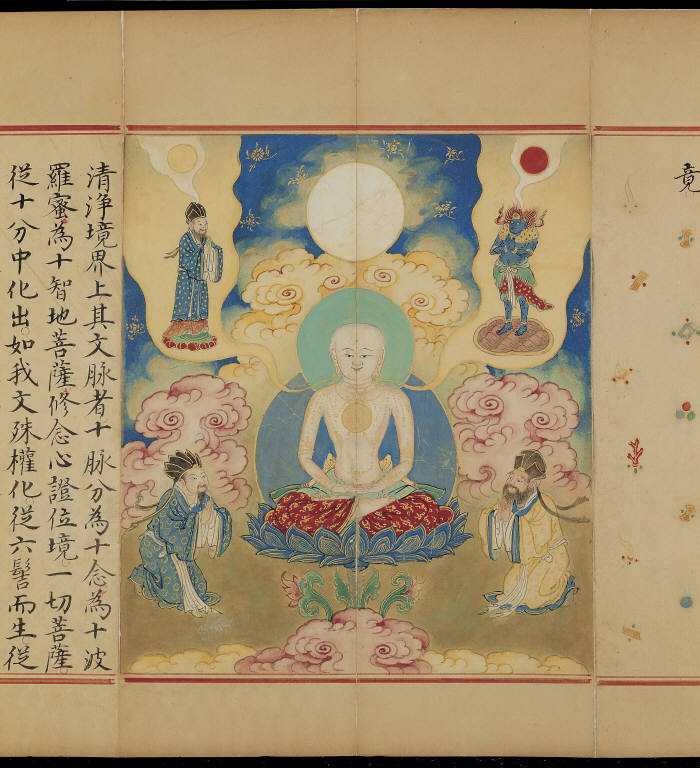 竟
清淨境界上其文脉者十脉分為十念為十波
羅蜜為十智地菩薩修念心證位境一切菩薩
從十分中化出如我文殊權化從六髻而生從